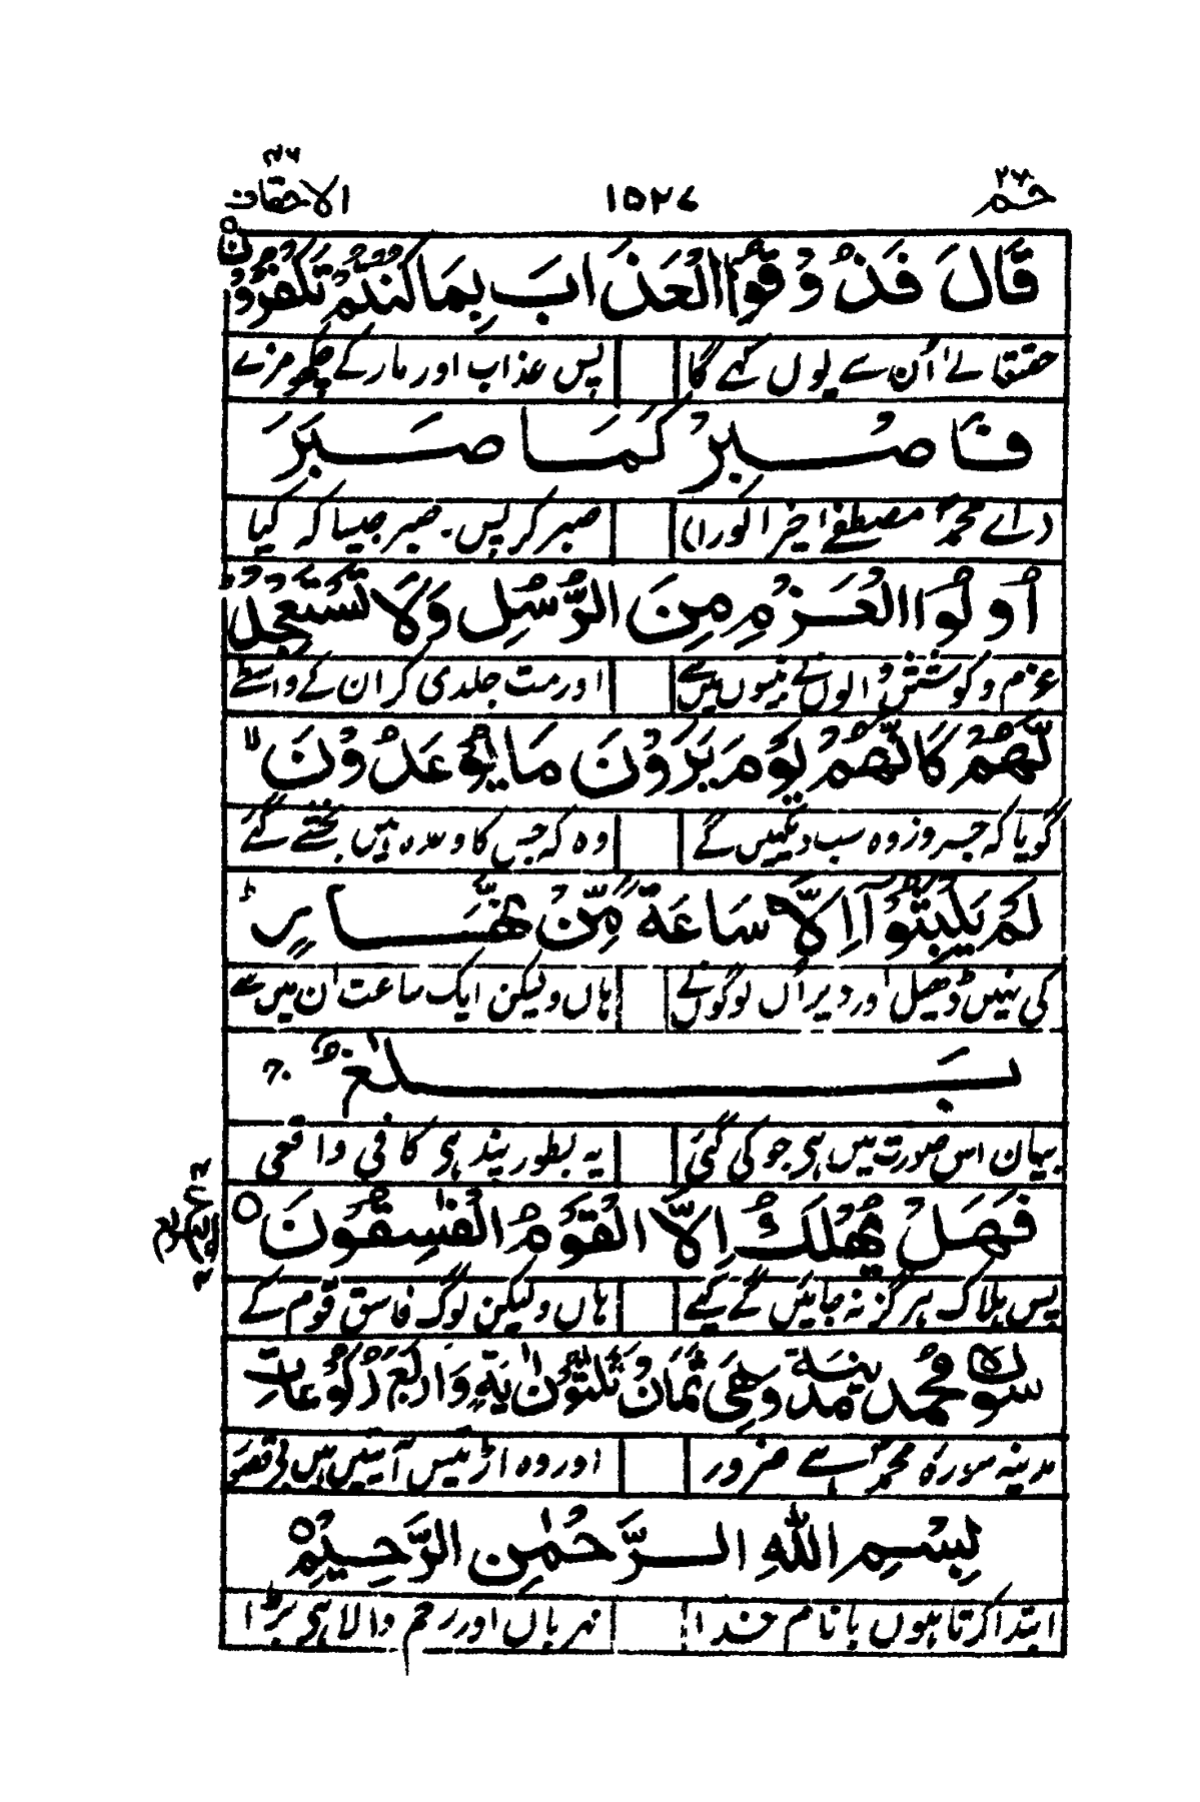 حٰم ٢٦ ١٥٢٧ الاحقاف ٤٦
قَالَ فَذُوْقُوا الْعَذَابَ بِمَا كُنْتُمْ تَكْفُرُوْنَ ○
حقتعالےٰ اُن سے یوں کہے گا پس عذاب اور مار کے چکھو مزے
فَاصْبِرْ كَمَا صَبَرَ
(اے محمدؐ مصطفےٰ خیر الورا) صبر کر پس۔ صبر جیسا کہ کیا
اُولُوا الْعَزْمِ مِنَ الرُّسُلِ وَلَا تَسْتَعْجِلْ
عزم و کوشش والوں نے نبیوں میں سے اور مت جلدی کر ان کے واسطے
لَّهُمْ كَاَنَّهُمْ يَوْمَ يَرَوْنَ مَا يُوْعَدُوْنَ ۙ
گویا کہ جس روز وہ سب دیکھیں گے وہ کہ جس کا وعدہ ہیں بخشے گئے
لَمْ يَلْبَثُوْٓا اِلَّا سَاعَةً مِّنْ نَّهَارٍ ؕ
کی نہیں ڈھیل اور دیر اُن لوگوں نے ہاں ولیکن ایک ساعت اُن میں سے
بَلٰغٌ ۚ
بیان اس صورت میں ہی جو کی گئی یہ بطور پند ہی کافی واقعی
فَهَلْ يُهْلَكُ اِلَّا الْقَوْمُ الْفٰسِقُوْنَ ○
پس ہلاک ہرگز نہ جائیں گے کیے ہاں ولیکن لوگ فاسق قوم کے
سورة محمد مدينة وهى ثمان وثلثون اٰية واربع ركوعات
مدینہ سورہ محمدؐ ہے ضرور اور وہ اڑتیس آیتیں ہیں بے قصور
بِسْمِ اللهِ الرَّحْمٰنِ الرَّحِيْمِ ○
ابتدا کرتا ہوں با نام خدا مہرباں اور رحم والا ہی بڑا